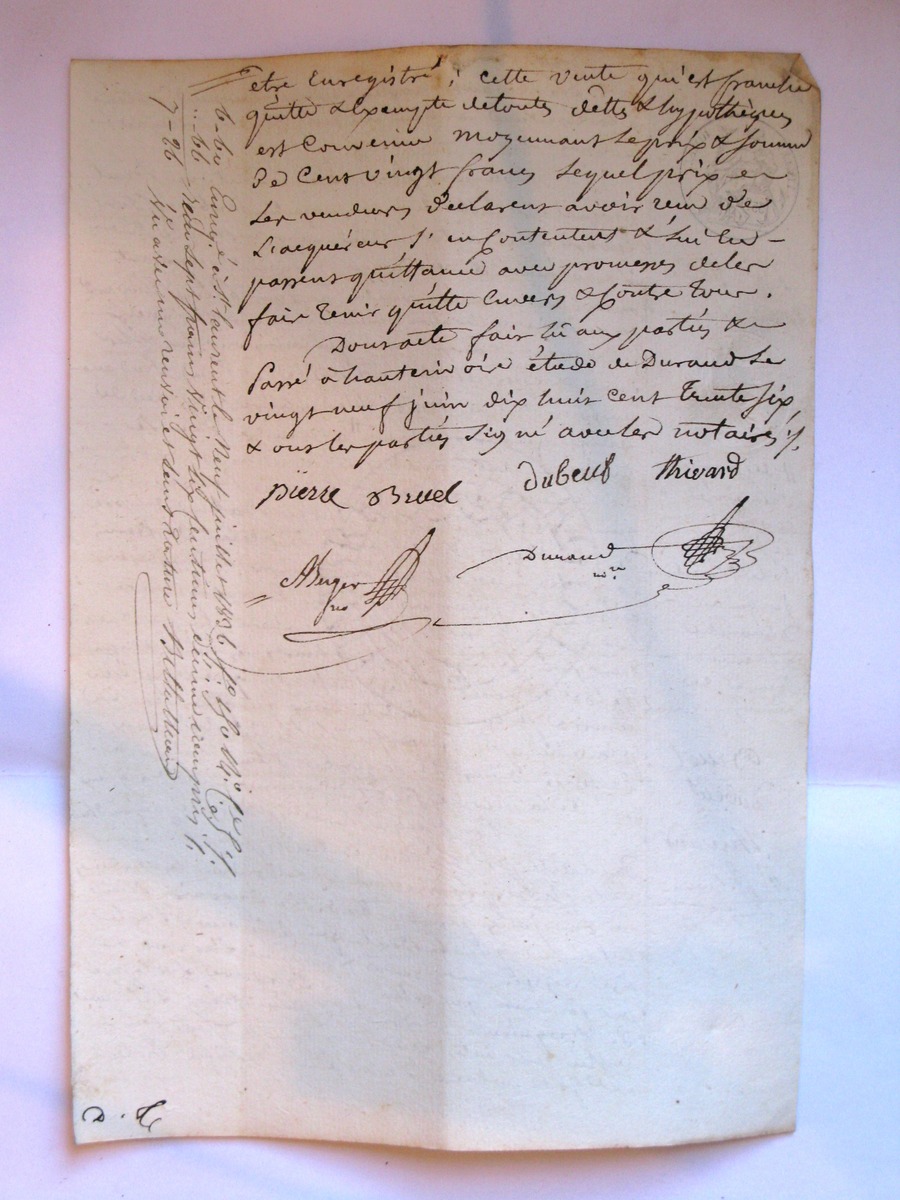 etre Enregistré ; cette vente qu'est franche
quitte & Exempte de toutes dêtts & hypothèques
est Convenue moyennant le prix & somme
de Cent vingt francs lequel prix
les vendeurs declarent avoir reçu de
L'acquéreur s'en Contentent & lui en
passent quittance avec promesses de les
faire tenir quitte Envers & Contre tous.
Dont acte fait lû aux partiés &
Passé à hauterivoire étude de Durand Le
vingt neuf juin dix huit cent trente six
& ont les partiés Signé avec les notaires ./.
pierre Bruel dubeuf thivard
Berger no
Durand nore
6-60 Enregé à St laurent le Neuf juillet 1836 fo
..-66 reçu sept francs vingt six Centimes
7-26
D.